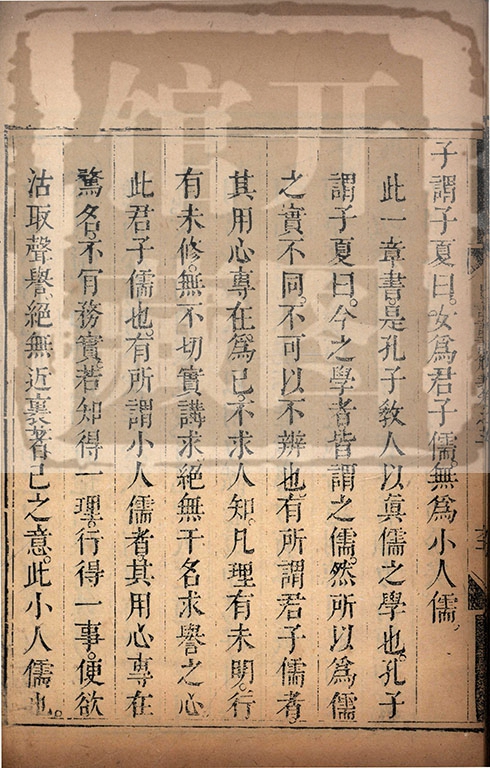 子謂子夏曰。女爲君子儒。無爲小人儒。
此一章書。是孔子教人以眞儒之學也。孔子
謂子夏曰。今之學者。皆謂之儒。然所以爲儒
之實不同。不可以不辨也。有所謂君子儒者。
其用心專在爲己。不求人知。凡理有未明。行
有未修。無不切實講求。絕無干名求譽之心。
此君子儒也。有所謂小人儒者。其用心專在
騖名。不肎務實。若知得一理。行得一事。便欲
沽取聲譽。絕無近裏著己之意。此小人儒也。